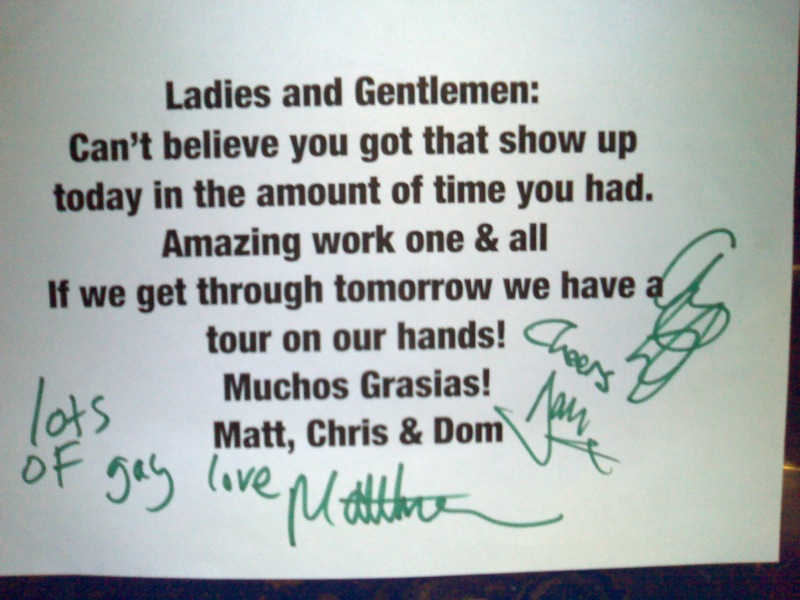 Ladies and Gentlemen:
Can't believe you got that show up
today in the amount of time you had.
Amazing work one & all
If we get through tomorrow we have a
tour on our hands!
Cheers
Muchos Grasias!
Matt, Chris & Dom
lots
OF gay love
Matthew